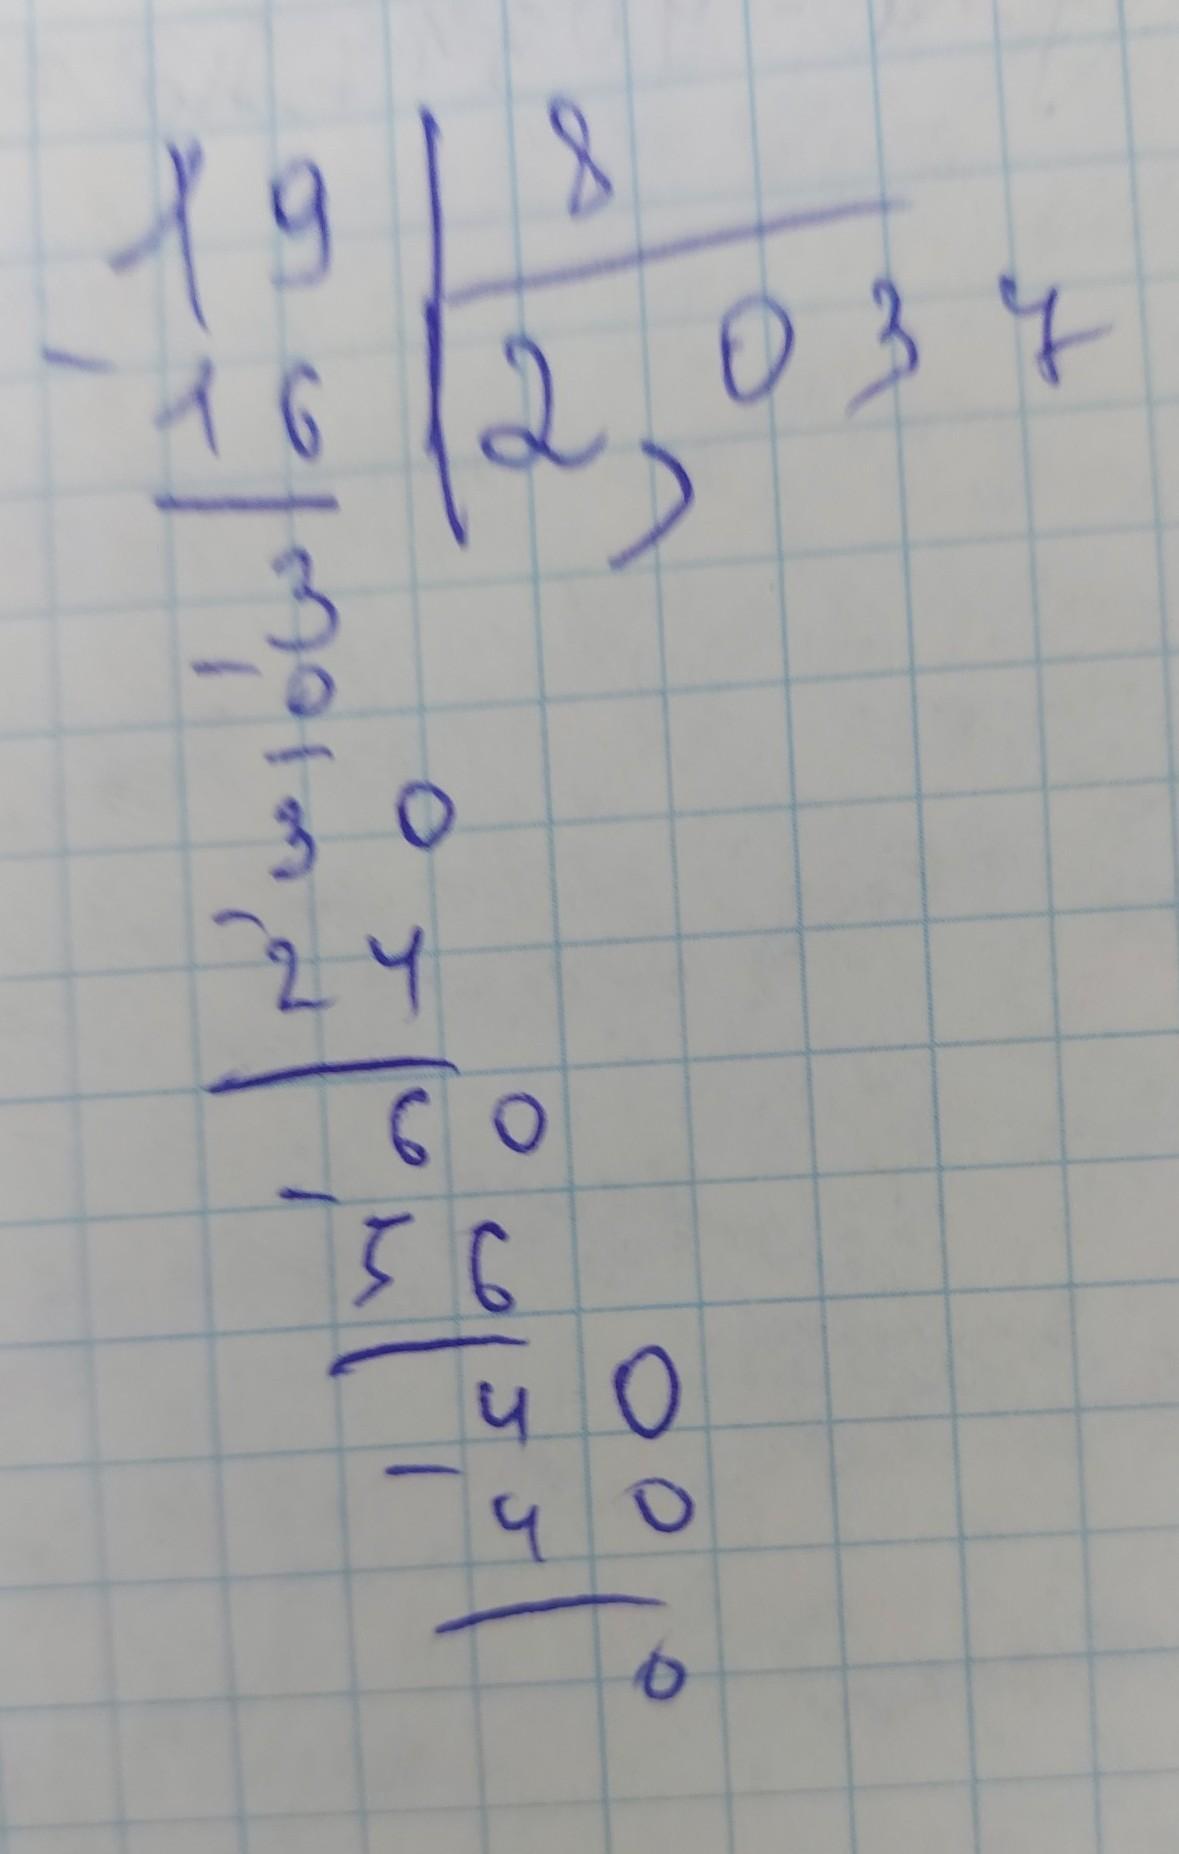 19 | 8
- 16 | 2,037
3
- 0
30
- 24
60
- 56
40
- 40
0